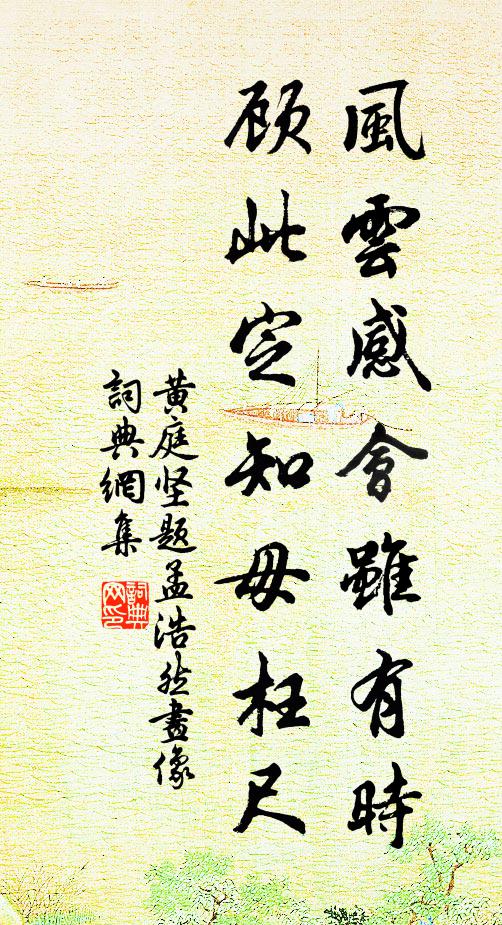 風雲感會雖有時
顧此定知毋枉尺
黄庭坚题孟浩然畫像
詞典網集
詞典
网印